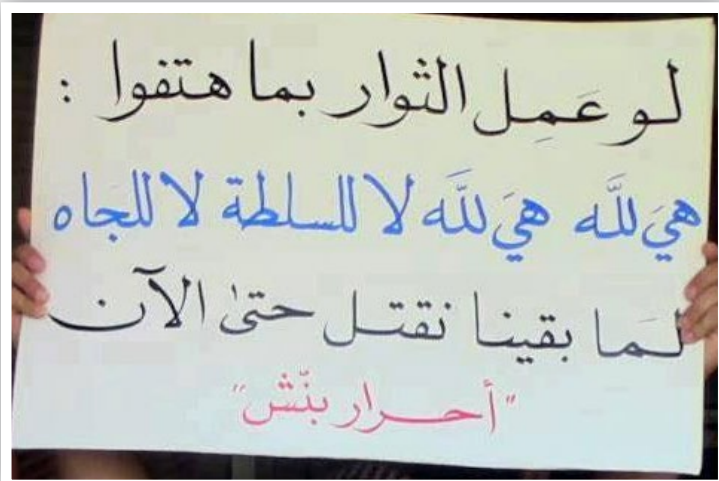 لو عَمِل الثوار بما هتفوا :
هيَ للَّه هيَ للَّه لا للسلطة لا للجَاه
لَما بقينا نقتل حتىٰ الآن
"أحرار بنّش"